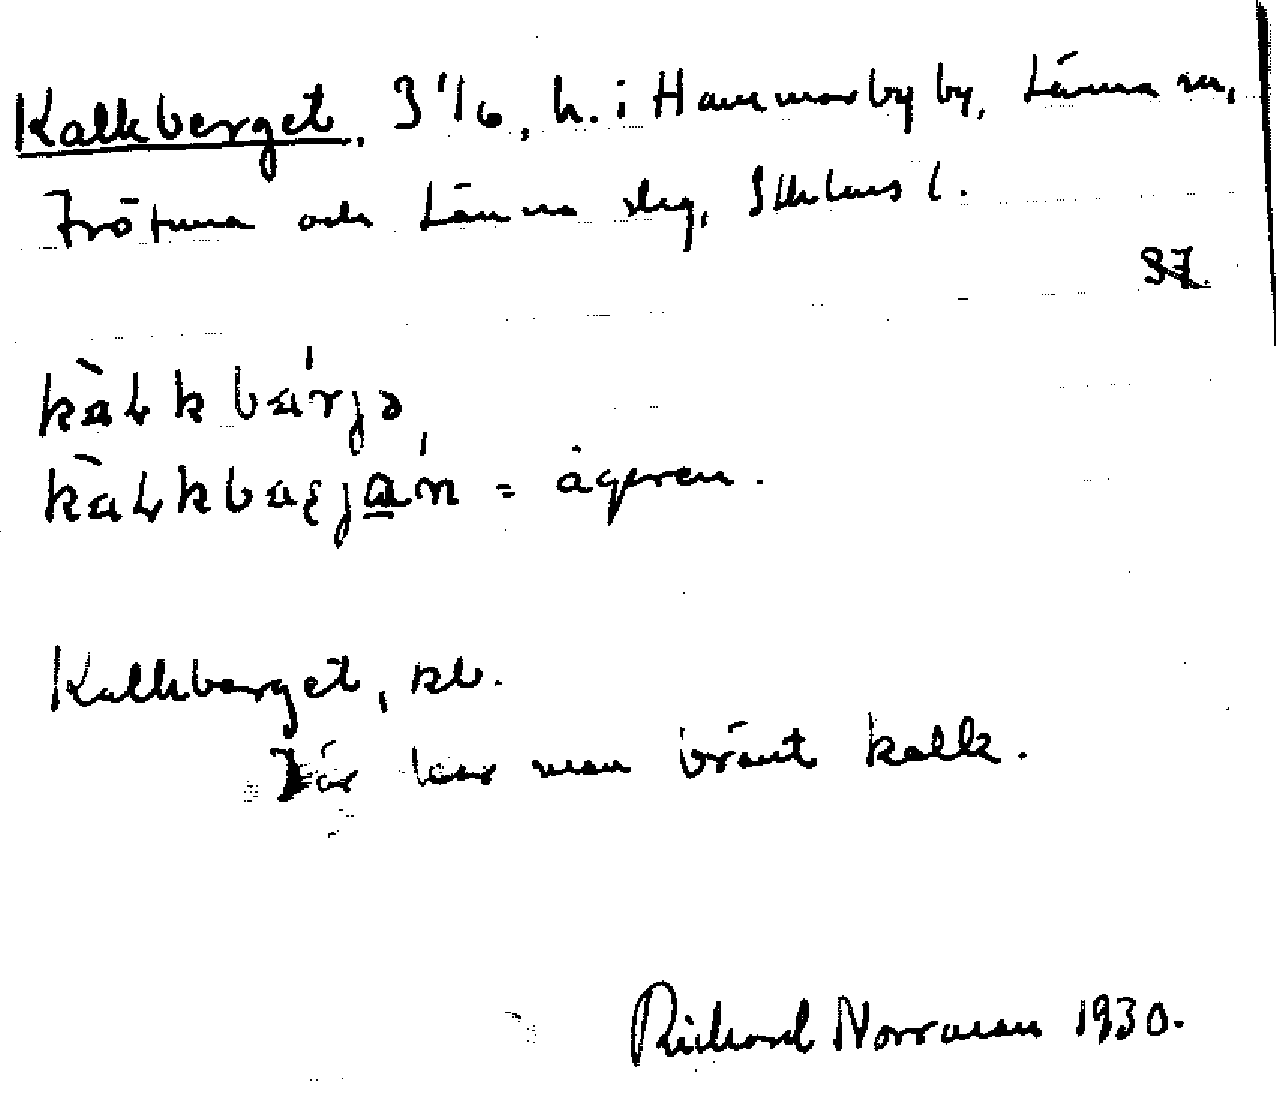 Kalkberget, 3 1/6, h. i Hammarby by, Länna sn,
Frötuna och Länna slg, Sthlms l.
37
kàLkbäŕjə,
kàLkbaʂján = ägaren.
Kalkberget, kb.
Där har man bränt kalk.
Richard Norrman 1930.